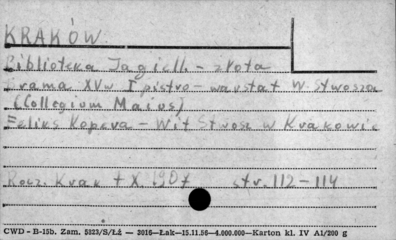 KRAKÓW.
Biblioteka Jagiell. - złota
brama XVw I piętro - warsztat W. Stwosza
(Collegium Maius)
Feliks Kopera - Wit Stwosz w Krakowie
Rocz. Krak t X. 1907 str. 112-114
CWD - B-15b. Zam. 5823/S/Łź — 3016—Łak—15.11.56—4.000.000—Karton kl. IV A1/200 g